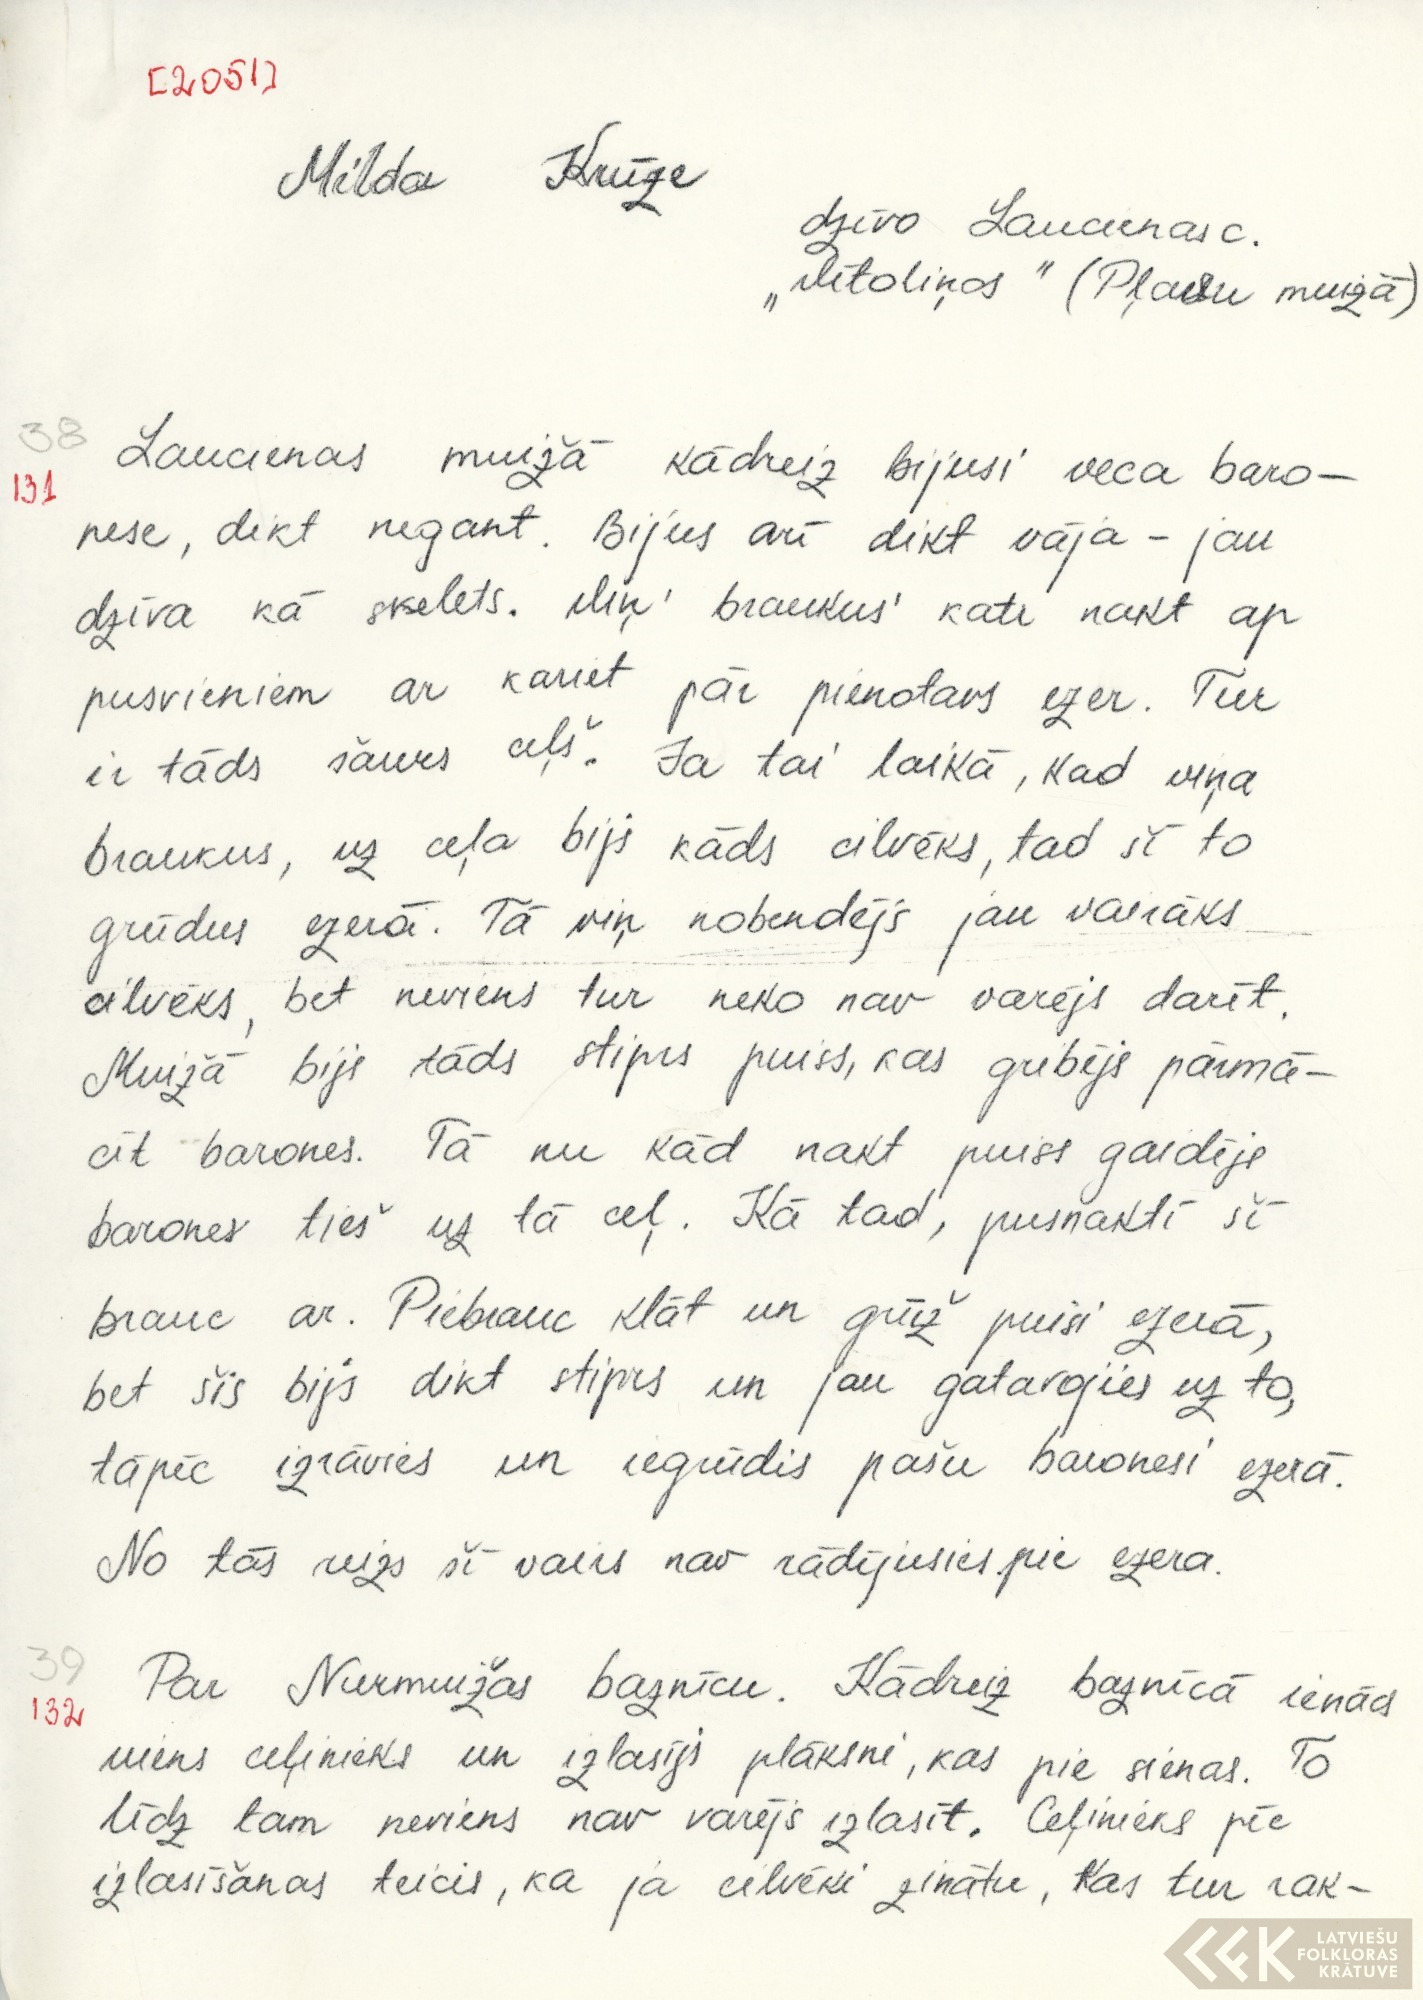 [2051]
Milda Krūze
dzīvo Laucienas c.
„Vītoliņos" (Pļavu muižā)
38
131
Laucienas muižā kādreiz bijusi veca baro-
nese, dikt negant. Bijus arī dikt vāja - jau
dzīva kā skelets. Viņ' braukus' katr nakt ap
pusvieniem ar kariet pār pienotavs ezer. Tur
ir tāds šaurs ceļš. Ja tai laikā, kad viņa
braukus, uz ceļa bijs kāds cilvēks, tad šī to
grūdus ezerā. Tā viņ nobendējs jau vairāks
cilvēks, bet neviens tur neko nav varējs darīt.
Muižā bijs tāds stiprs puiss, kas gribējs pārmā-
cīt barones. Tā nu kād nakt puiss gaidējs
barones tieš uz tā ceļ. Kā tad, pusnaktī šī
brauc ar. Piebrauc klāt un grūž puisi ezerā,
bet šis bijs dikt stiprs un jau gatavojies uz to,
tāpēc izrāvies un iegrūdis pašu baronesi ezerā.
No tās reizs šī vairs nav rādījusies pie ezera.
39
132
Par Nurmuižas baznīcu. Kādreiz baznīcā ienāds
viens ceļinieks un izlasījs plāksni, kas pie sienas. To
līdz tam neviens nav varējs izlasīt. Ceļinieks pēc
izlasīšanas teicis, ka ja cilvēki zinātu, kas tur rak-
LATVIEŠU
FOLKLORAS
KRĀTUVE